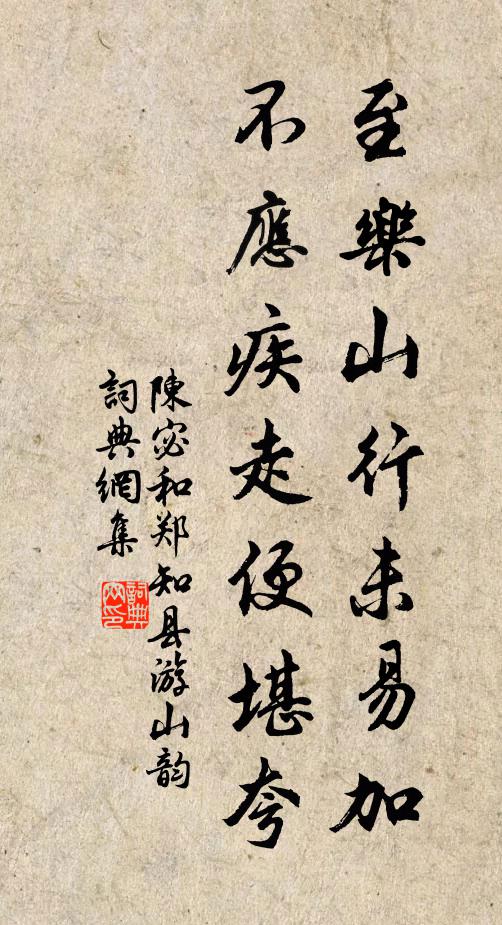 至樂山行未易加
不應疾走便堪夸
陳宓和郑知县游山韵
詞典網集
詞典網印